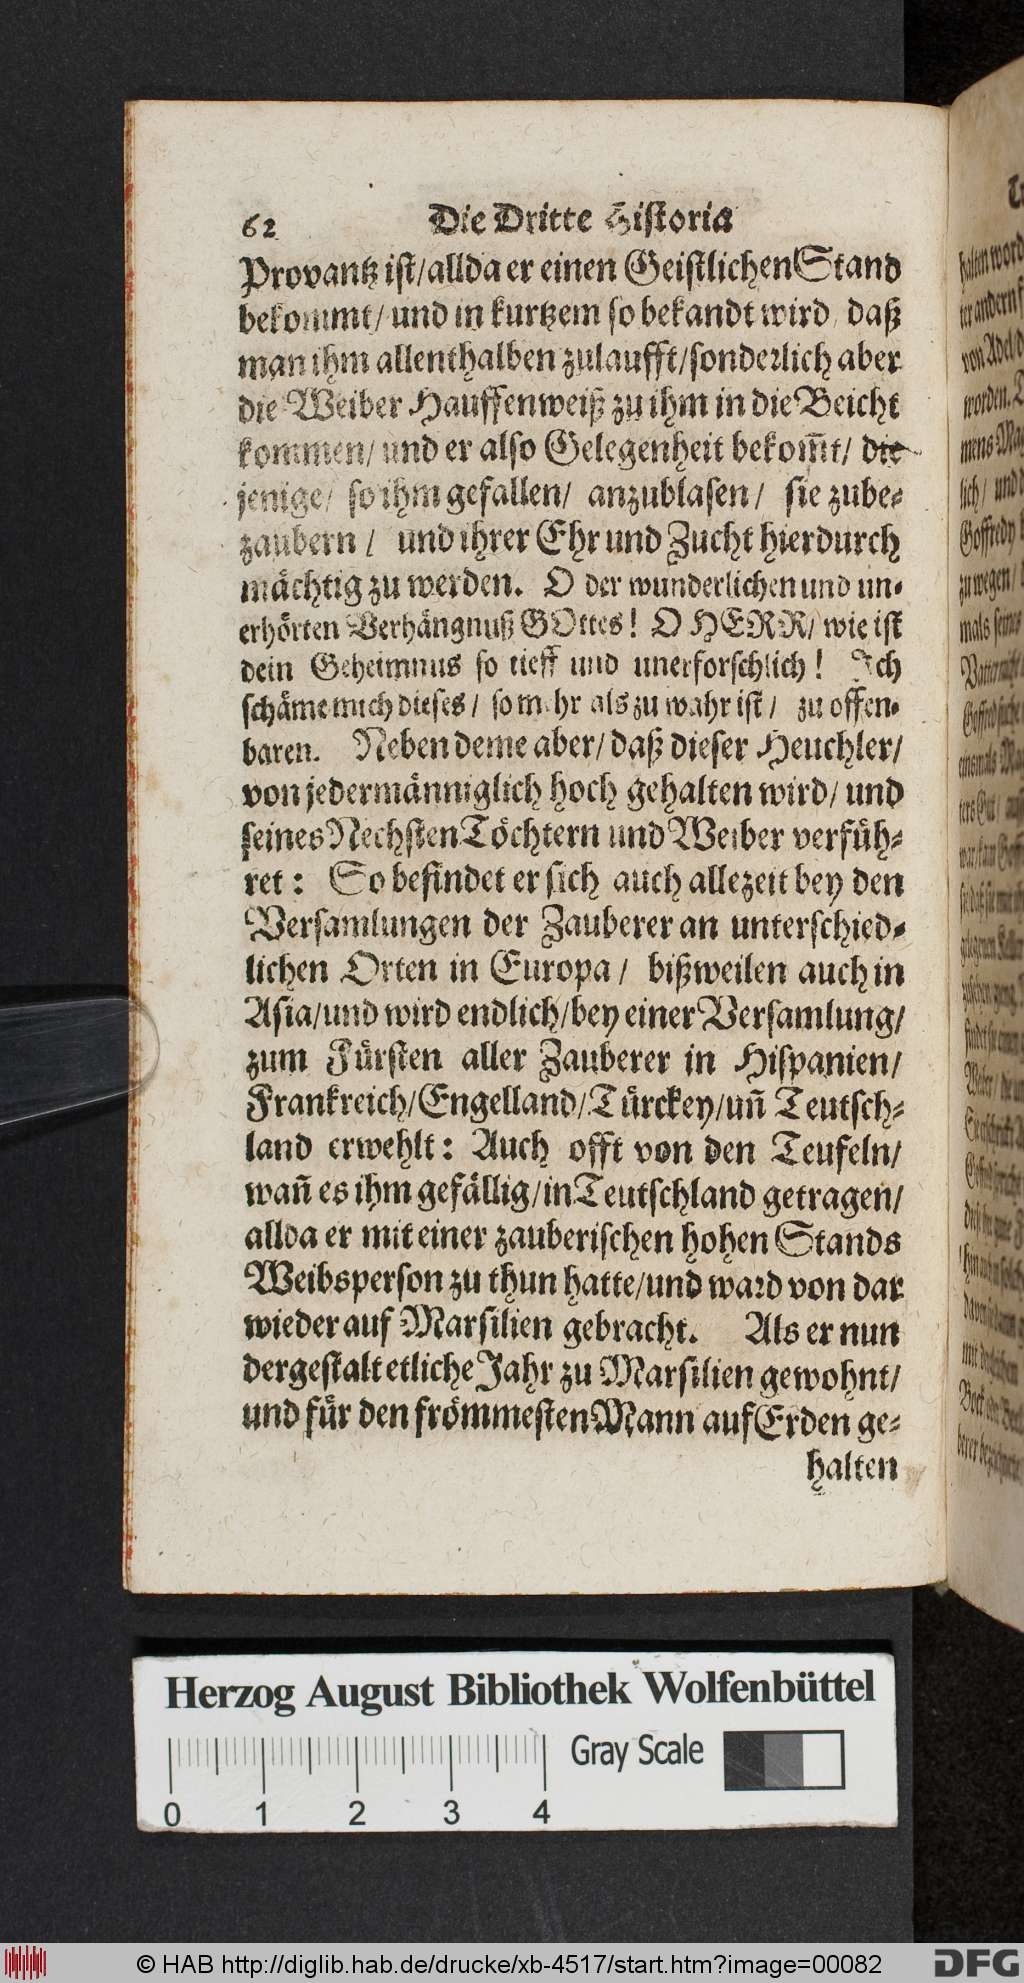 62 Die Dritte Historia
Provantz ist/allda er einen Geistlichen Stand
bekommt/ und in kurtzem so bekandt wird, daß
man ihm allenthalben zulaufft/sonderlich aber
die Weiber Hauffenweiß zu ihm in die Beicht
kommen/ und er also Gelegenheit bekom̃t/ die
jenige/ so ihm gefallen/ anzublasen/ sie zube-
zaubern/ und ihrer Ehr und Zucht hierdurch
mächtig zu werden. O der wunderlichen und un-
erhörten Verhängnuß GOttes! O HERR/ wie ist
dein Geheimnus so tieff und unerforschlich! Ich
schäme mich dieses/ so mehr als zu wahr ist/ zu offen-
baren. Neben deme aber/ daß dieser Heuchler/
von jedermänniglich hoch gehalten wird/ und
seines Nechsten Töchtern und Weiber verfüh-
ret: So befindet er sich auch allezeit bey den
Versamlungen der Zauberer an unterschied-
lichen Orten in Europa/ bißweilen auch in
Asia/und wird endlich/bey einer Versamlung/
zum Fürsten aller Zauberer in Hispanien/
Franckreich/Engelland/Türckey/uñ Teutsch-
land erwehlt: Auch offt von den Teufeln/
wañ es ihm gefällig/in Teutschland getragen/
allda er mit einer zauberischen hohen Stands
Weibsperson zu thun hatte/und ward von dar
wieder auf Marsilien gebracht. Als er nun
dergestalt etliche Jahr zu Marsilien gewohnt/
und für den frömmesten Mann auf Erden ge-
halten
Herzog August Bibliothek Wolfenbüttel
Gray Scale
0 1 2 3 4
© HAB http://diglib.hab.de/drucke/xb-4517/start.htm?image=00082
DFG